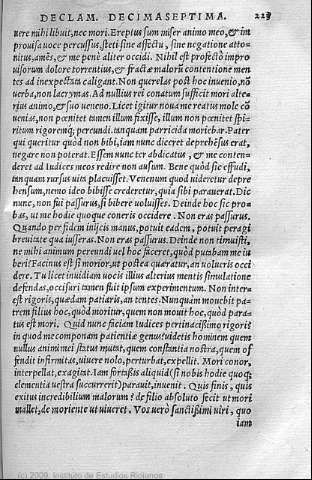 DECLAM. DECIMASEPTIMA. 229
uere nihil libuit, nec mori. Ereptus sum miser animo meo, & im
prouisa uoce percussus, steti sine affectu, sine negatione atto-
nitus, amēs, & me penè aliter occidi. Nihil est profectò impro
uisorum dolore torrentius, & fractæ malorū contentione men
tes ad inexpectata caligant. Non querelas post hoc inuenio, nō
uerba, non lacrymas. Ad nullius rei conatum sufficit mori alte-
rius animo, & suo ueneno. Licet igitur noua me reatus mole cō
uenias, non pœnitet tamen illum fixisse, illum non pœnitet spi-
ritum rigoremq; pereundi. tanquam parricida moriebar. Pater
qui queritur quòd non bibi, iam nunc diceret deprehēsus erat,
negare non poterat. Essem nunc ter abdicatus, & me conten-
deret ad Iudices meos redire non ausum. Bene quòd sic effudi,
tanquam rursus uiis placuisset. Venenum quod uideretur depre
hensum, nemo ideo bibisse crederetur, quia sibi parauerat. Dic
nunc, non fui passurus, si bibere uoluisses. Deinde hoc sic pro-
bas, ut me hodie quoque coneris occidere. Non eras passurus.
Quando per fidem iniicis manus, potuit eadem, potuit peragi
breui extra qua iusseras. Non eras passurus. Deinde non timuisti,
ne mihi animum pereundi uel hoc faceret, quòd putabam me iu
beri? Facinus est si morior, ut postea quæratur, an uolueris occi
dere. Tu licet inuidiam uocis illius alterius mentis simulatione
defendas, occisuri tamen fuit ipsum experimentum. Non inter-
est rigoris, quædam patiaris, an tentes. Nunquàm mouebit pa-
trem filius hoc, quòd moritur, quem non mouit hoc, quòd para-
tus est mori. Quid nunc faciam Iudices pertinacissimo rigori?
in quod me componam patientiæ genus? uidetis hominem quem
nullus animi mei status mutat, quem constantia nostra, quem of
fendit infirmitas, uiuere nolo, perturbat, expellit. Mori conor,
interpellat, exagitat. Iam fortassis aliquid (si nobis hodie quoq;
clementia uestra succurrerit) parauit, inuenit. Quis finis, quis
exitus incredibilium malorum? de filio absoluto fecit ut mori
mallet, de moriente ut uiueret. Vos uerò sanctissimi uiri, quo
iam
(c) 2009. Instituto de Estudios Riojanos